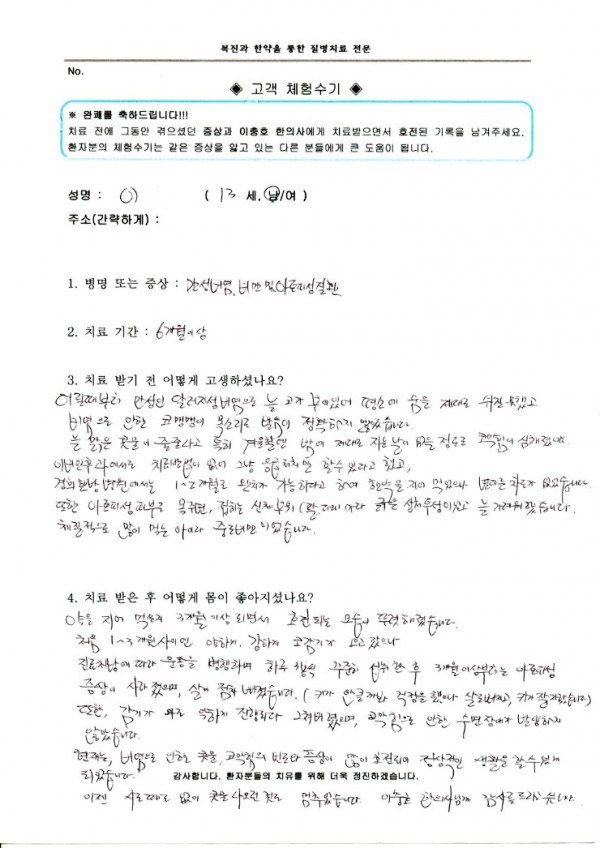 복진과 한약을 통한 질병치료 전문
No.
◈ 고객 체험수기 ◈
※ 완쾌를 축하드립니다!!!
치료 전에 그동안 겪으셨던 증상과 이충호 한의사에게 치료받으면서 호전된 기록을 남겨주세요.
환자분의 체험수기는 같은 증상을 앓고 있는 다른 분들에게 큰 도움이 됩니다.
성명 : 이 ( 13 세, 남/여 )
주소(간략하게) :
1. 병명 또는 증상 : 만성비염, 비만 및 아토피성질환
2. 치료 기간 : 6개월이상
3. 치료 받기 전 어떻게 고생하셨나요?
어릴때부터 만성인 알러지성비염으로 늘 코가 막혀있어 평소에 숨을 제대로 쉬질 못했고
비염으로 인한 코맹맹이 목소리로 발음이 정확하지 않았습니다.
늘 맑은 콧물이 줄줄나고 특히 겨울철엔 밤에 제대로 자는 날이 없을 정도로 코막힘이 심해졌습니다.
이비인후과에서는 치료방법이 없어 그냥 응급처치만 할수 있다고 했고,
경희한방병원에서는 1~2개월로 완치가 가능하다고 하여 한약을 지어 먹었으나 별다른 차도가 없었습니다.
또한 아토피성피부로 목주변, 접히는 신체부위 (팔, 다리 상처투성이였고 늘 가려워했습니다.
체질적으로 많이 먹는 아이라 중도비만이었습니다.
4. 치료 받은 후 어떻게 몸이 좋아지셨나요?
약을 지어 먹은지 3개월이상 되면서 호전되는 모습이 뚜렷해졌습니다.
처음 1~3개월사이엔 약하게, 강하게 코감기가 오고갔으나
진료처방에 따라 운동을 병행하며 하루 꾸준히 섭취한 후 3개월이상부터는 아토피성
증상이 사라졌으며, 살이 점차 빠졌습니다. ( 키가 안클까봐 걱정을 했으나 살은빠지고, 키가 많이컸습니다)
또한, 감기가 와도 약하게 진행되다 그쳐버렸으며, 코막힘으로 인한 수면장애가 발생하지
않았습니다.
현재는, 비염으로 인하는 콧물, 코막힘의 증상이 많이 호전되어 정상적인 생활을 할수 있게
되었습니다.
감사합니다. 환자분들의 치유를 위해 더욱 정진하겠습니다.
이젠 시도때도 없이 콧물 나오던 것도 멈추었습니다. 이충호 한의사님께 감사를 드리고 싶습니다.